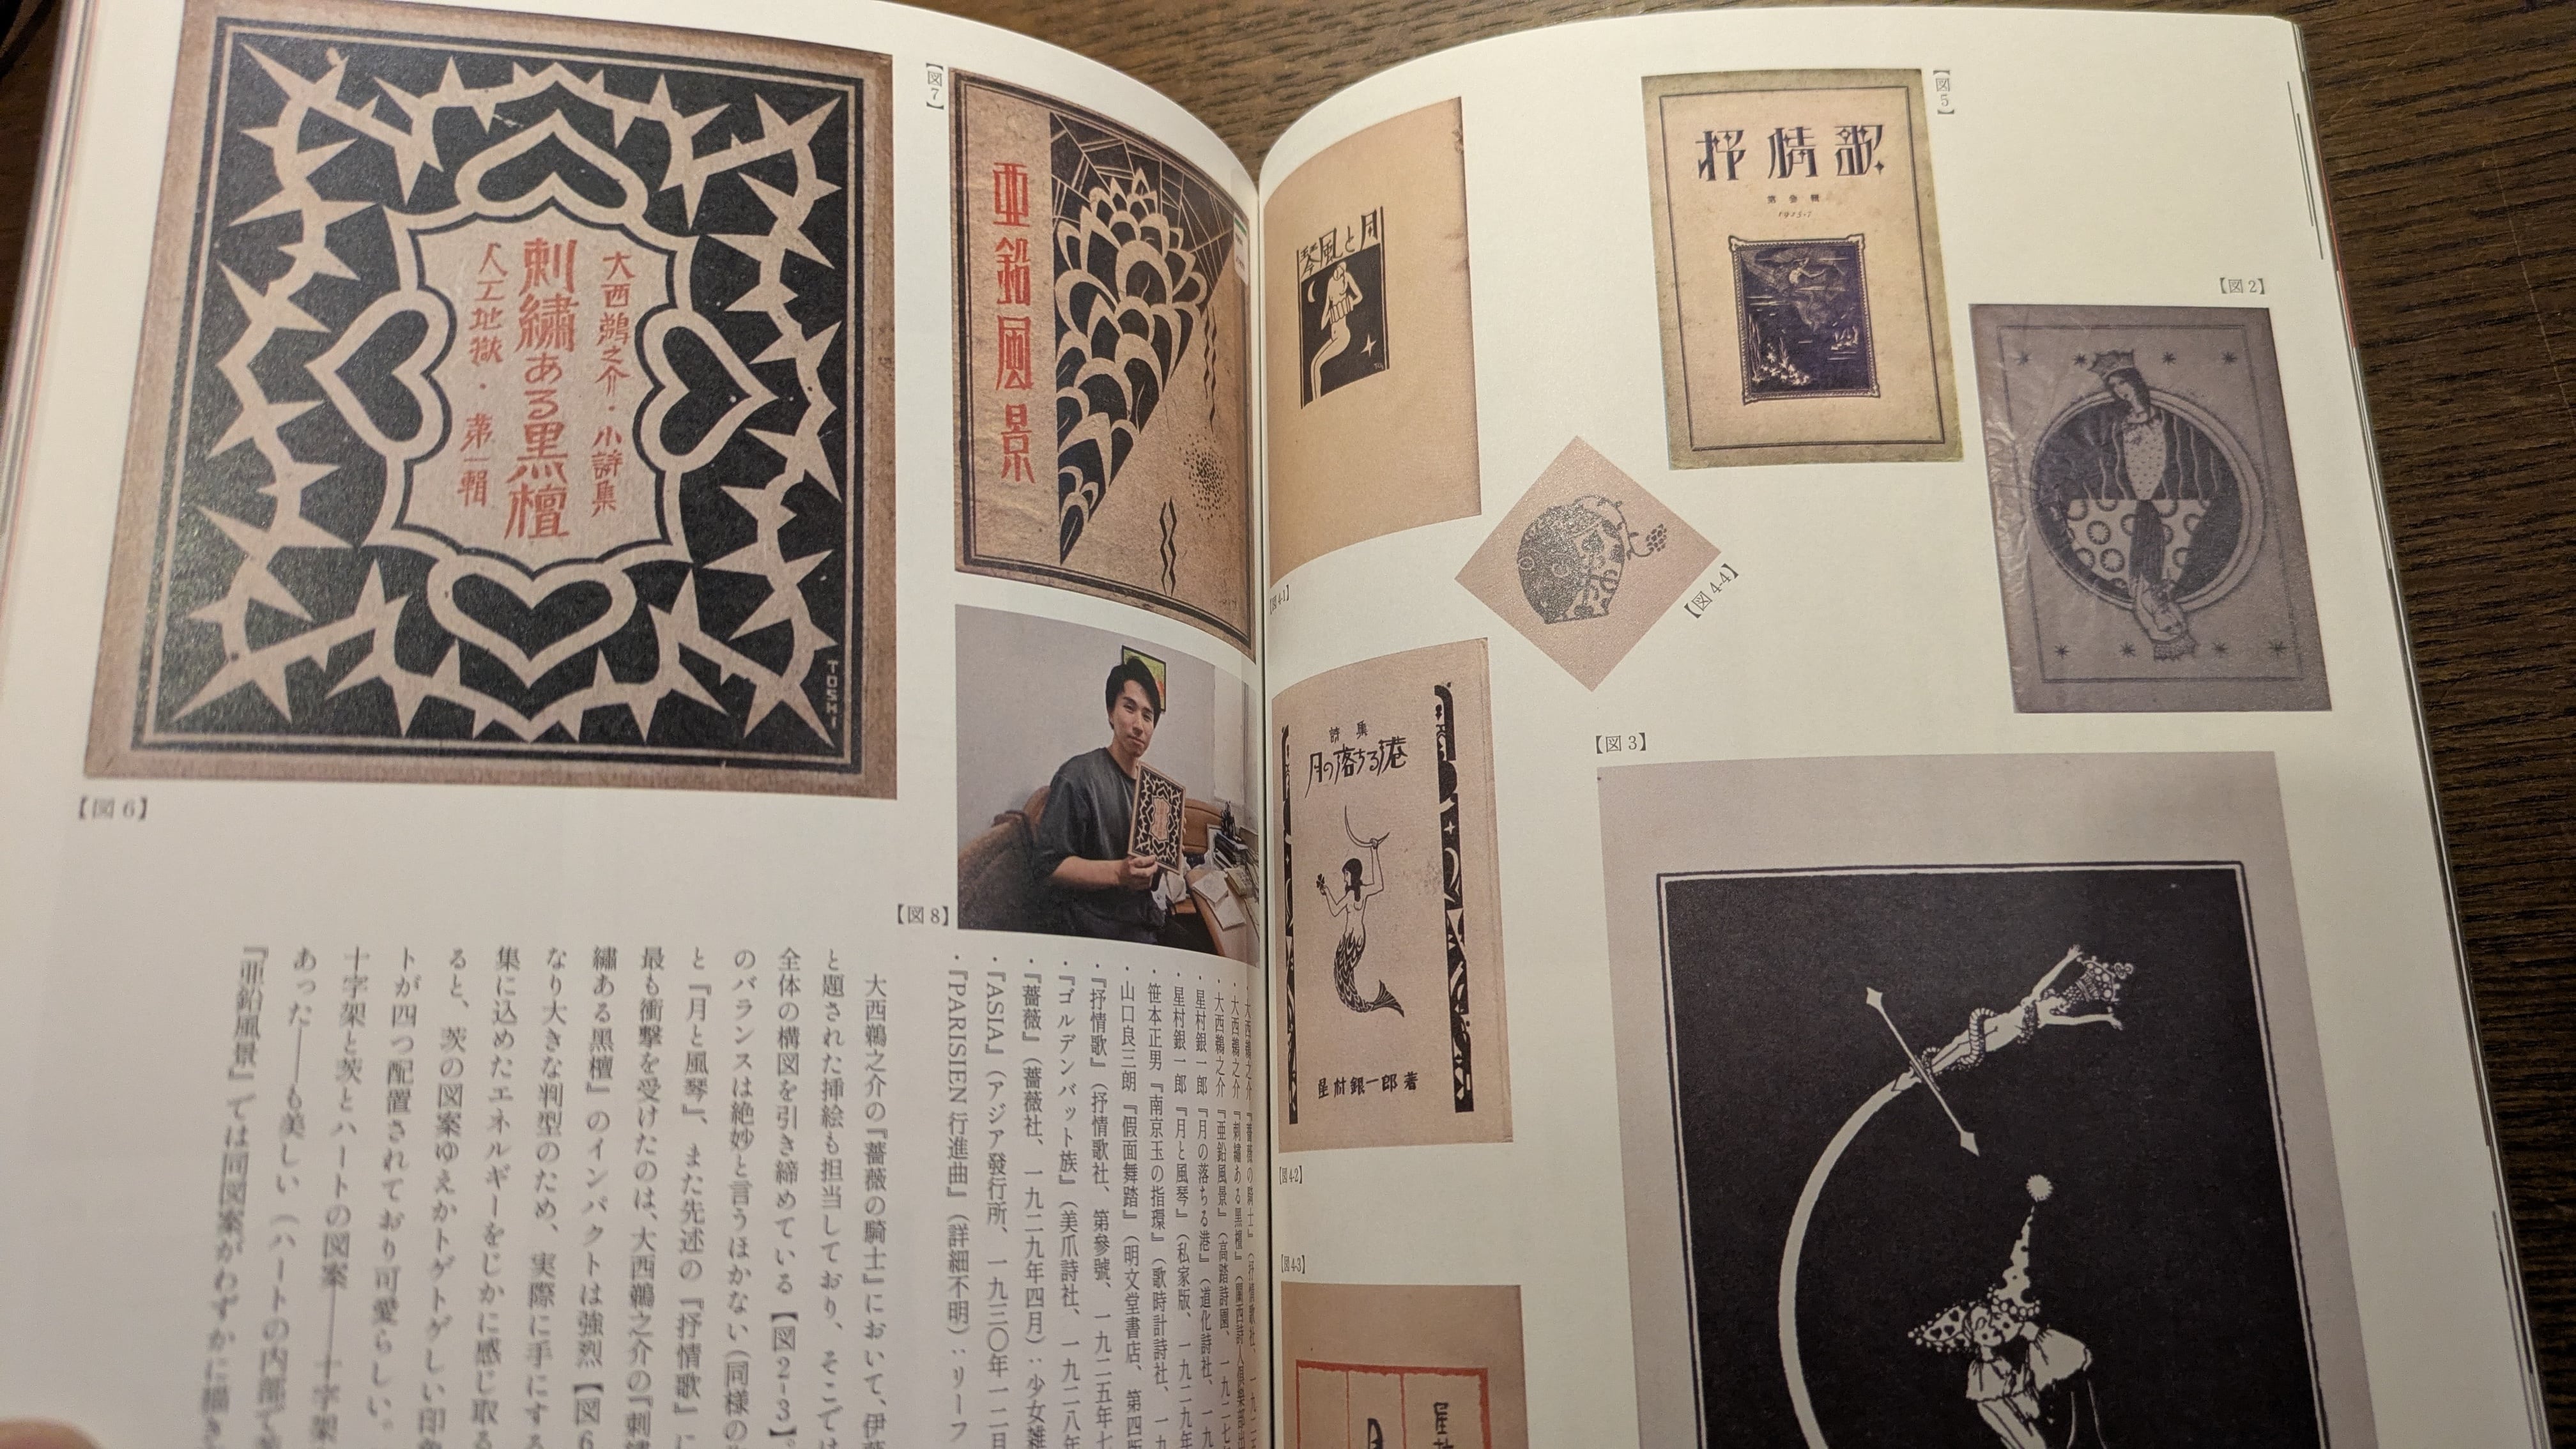 【図5】
抒情歌
第参輯
1925・7
【図2】
月と風琴
【図4-1】
【図4-4】
詩集
月の落ちる港
星村銀一郎著
【図4-2】
【図3】
【図4-3】
【図7】
亜鉛風景
大西鵜之介・小詩集
刺繍ある黒檀
人工地獄・第一輯
TOSHI
【図6】
【図8】
・大西鵜之介『薔薇の騎士』（抒情歌社、一九二
・大西鵜之介『刺繍ある黒檀』（關西詩人俱楽部
・大西鵜之介『亜鉛風景』（高踏詩園、一九二七年
・星村銀一郎『月の落ちる港』（道化詩社、一九
・星村銀一郎『月と風琴』（私家版、一九二九年
・笹本正男『南京玉の指環』（歌時計詩社、一九
・山口良三朗『假面舞踏』（明文堂書店、第四版
・『抒情歌』（抒情歌社、第參號、一九二五年七
・『ゴルデンバット族』（美爪詩社、一九二八年
・『薔薇』（薔薇社、一九二九年四月）：少女雑
・『ASIA』（アジア發行所、一九三〇年一二月
・『PARISIEN 行進曲』（詳細不明）：リーフ
大西鵜之介の『薔薇の騎士』において、伊藤
と題された挿絵も担当しており、そこでは
全体の構図を引き締めている【図2-3】。
のバランスは絶妙と言うほかない（同様の
と『月と風琴』、また先述の『抒情歌』に
最も衝撃を受けたのは、大西鵜之介の『刺
繡ある黒檀』のインパクトは強烈【図6
なり大きな判型のため、実際に手にする
集に込めたエネルギーをじかに感じ取る
ると、茨の図案ゆえかトゲトゲしい印象
トが四つ配置されており可愛らしい。
十字架と茨とハートの図案――十字架
あった――も美しい（ハートの内部で
『亜鉛風景』では同図案がわずかに描き